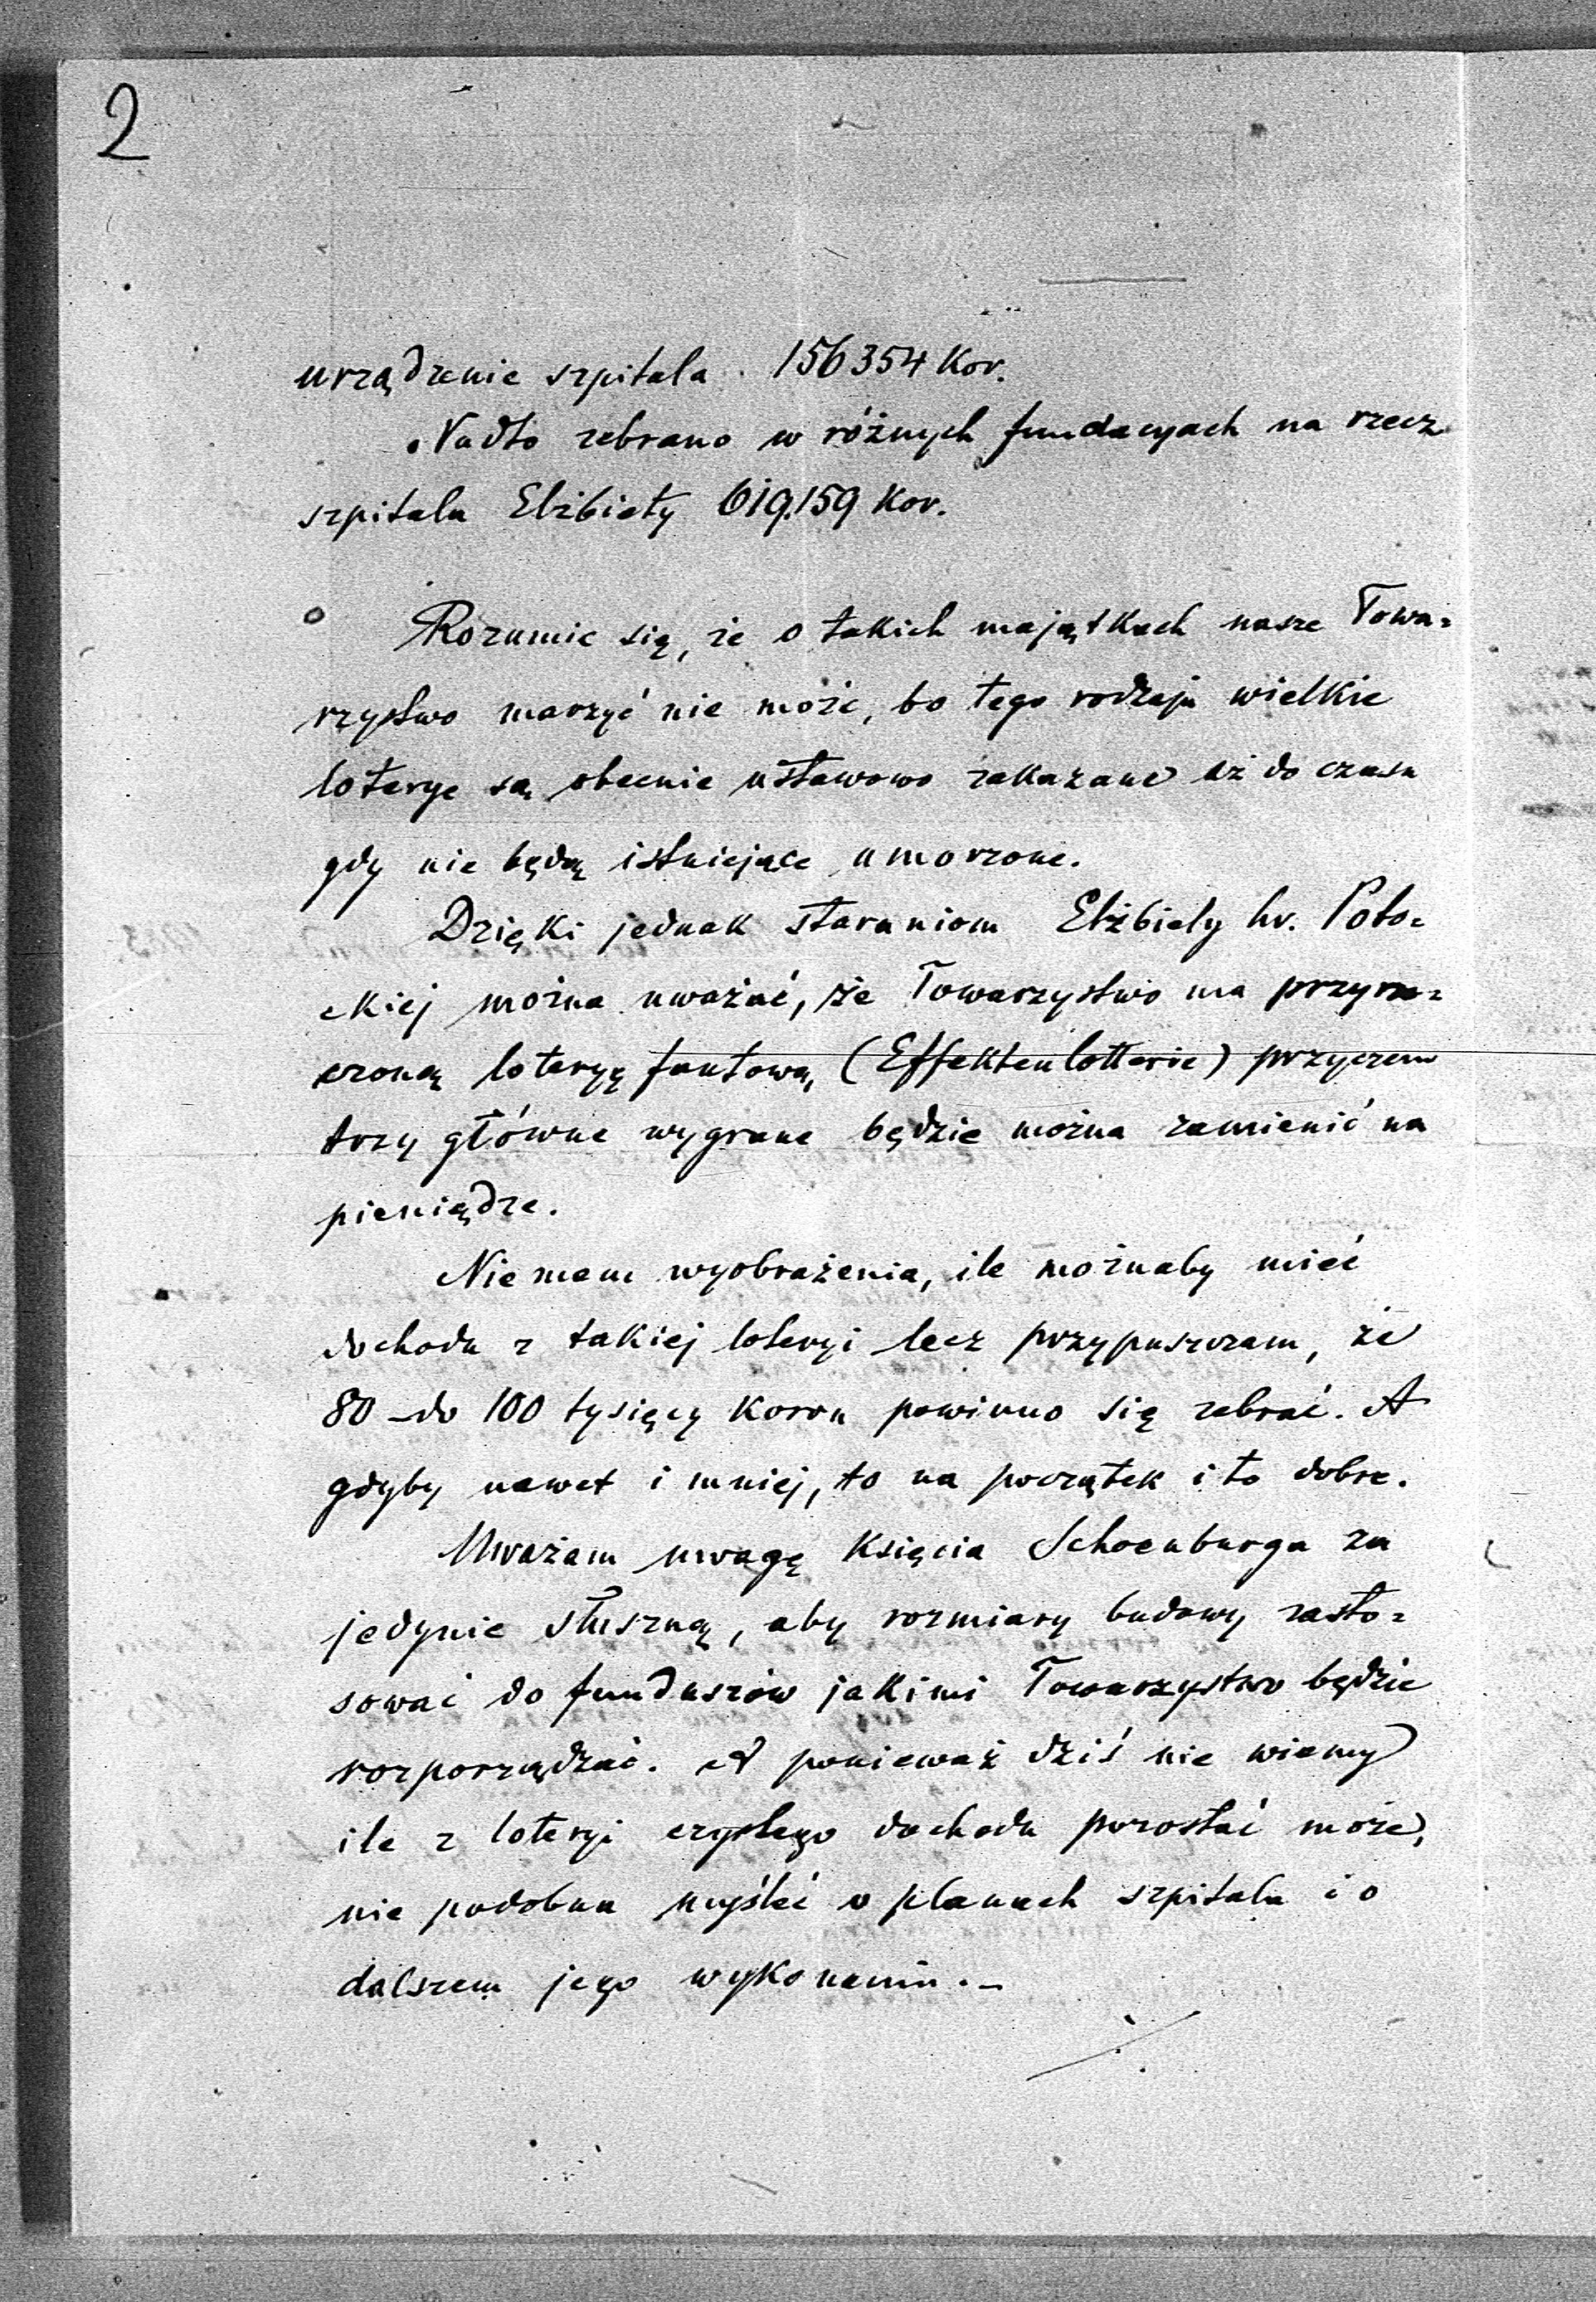 2
urządzenie szpitala . 156354 Kor.
Nadto zebrano w różnych fundacyach na rzecz
szpitala Elżbiety 619.159 Kor.
Rozumie się, że o takich majątkach nasze Towa=
rzystwo marzyć nie może, bo tego rodzaju wielkie
loterye są obecnie ustawowo zakazane aż do czasu
gdy nie będą istniejące umorzone.
Dzięki jednak staraniom Elżbiety hr. Poto=
ckiej można uważać, że Towarzystwo ma przyrze=
czoną loteryę fantową (Effektenlotterie) przyczem
trzy główne wygrane będzie można zamienić na
pieniądze.
Nie mam wyobrażenia, ile możnaby mieć
dochodu z takiej loteryi lecz przypuszczam, że
80 – do 100 tysięcy koron powinno się zebrać. A
gdyby nawet i mniej, to na początek i to dobre.
Uważam uwagę księcia Schoenburga za
jedynie słuszną, aby rozmiary budowy zasto=
sować do funduszów jakimi Towarzystwo będzie
rozporządzać. A ponieważ dziś nie wiemy
ile z loteryi czystego dochodu pozostać może,
nie podobna myśleć o planach szpitala i o
dalszem jego wykonaniu. –